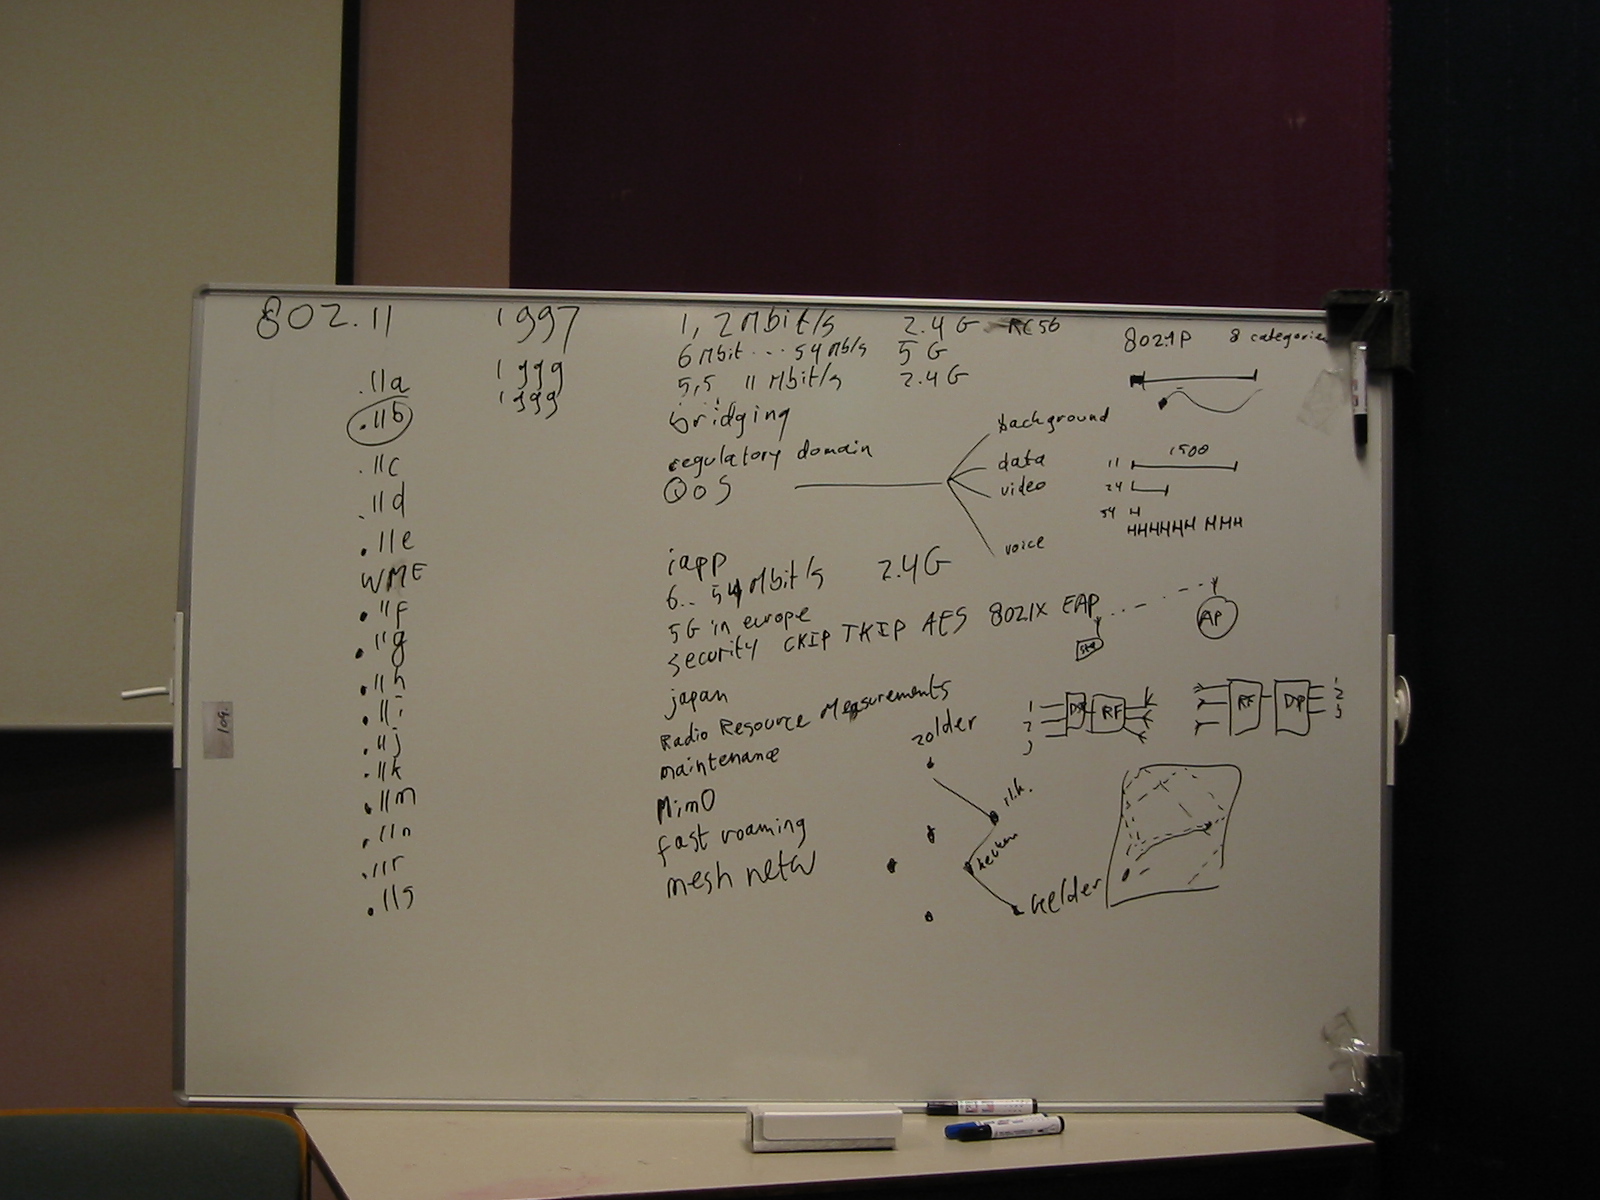 802.11 1997 1, 2 Mbit/s 2.4 G RC56
6 Mbit ... 54 Mb/s 5 G
.11a 1999 5,5 11 Mbit/s 2.4 G
.11b 1999 bridging
.11c regulatory domain
.11d QoS
.11e
WME iapp
.11f 6.. 54 Mbit/s 2.4 G
.11g 5G in europe
.11h security CKIP TKIP AES 8021X EAP
.11i japan
.11j Radio Resource Measurements
.11k maintenance
.11m MimO
.11n fast roaming
.11r mesh netw
.11s
8021P 8 categories
background
data
video
voice
1500
11
24
54
AP
sta
1
2
3
DSP RF
RF DSP
1
2
3
zolder
keuken
kelder
109.